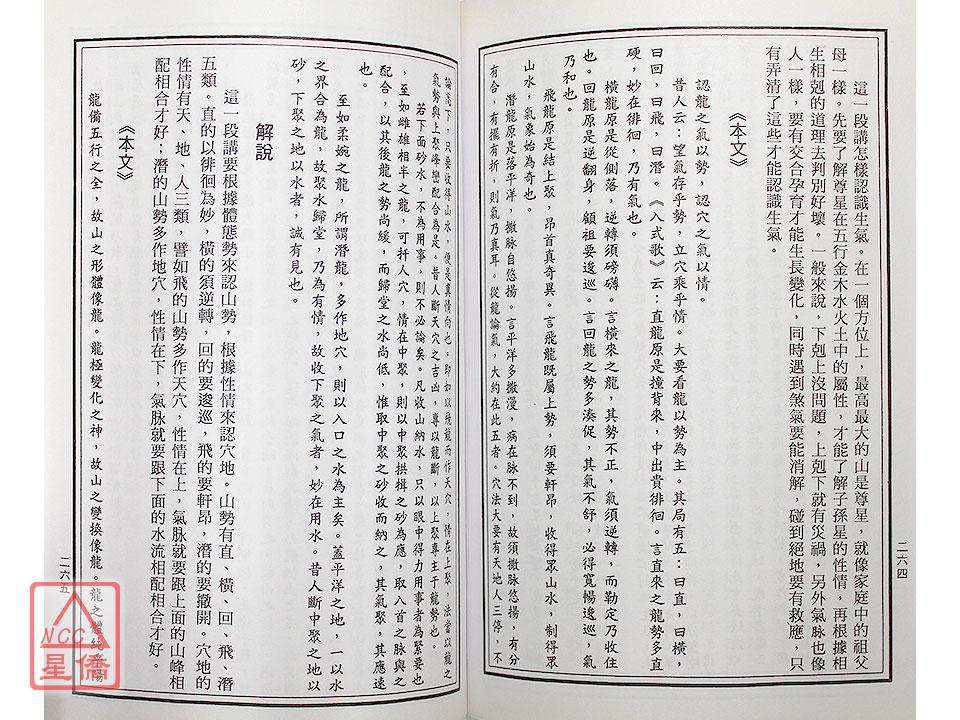 這一段講怎樣認識生氣。在一個方位上，最高最大的山是尊星，就像家庭中的祖父
母一樣。先要了解尊星在五行金木水火土中的屬性，才能了解子孫星的性情，再根據相
生相剋的道理去判別好壞。一般來說，下剋上沒問題，上剋下就有災禍，另外氣脉也像
人一樣，要有交合孕育才能生長變化，同時遇到煞氣要能消解，碰到絕地要有救應，只
有弄清了這些才能認識生氣。
《本文》
認龍之氣以勢，認穴之氣以情。
昔人云：望氣存乎勢，立穴乘乎情。大要看龍以勢為主。其局有五：曰直，曰橫，
曰回，曰飛，曰潛。《入式歌》云：直龍原是撞背來，中出貴徘徊。言直來之龍勢多直
硬，妙在徘徊，乃有氣也。
橫龍原是從側落，逆轉須磅礡。言橫來之龍，其勢不正，氣須逆轉，而勒定乃收住
也。回龍原是逆翻身，顧祖要逡巡。言回龍之勢多湊促，其氣不舒，必得寬暢逡巡，氣
乃和也。
飛龍原是結上聚，昂首真奇異。言飛龍既屬上勢，須要軒昂，收得眾山水，制得眾
山水，氣象始為奇也。
潛龍原是落平洋，撒脉自悠揚。言平洋多撒漫，病在脉不到，故須撒脉悠揚，有分
有合，有擺有折，則氣乃真耳。從龍論氣，大約在此五者。穴法大要有天地人三停，不
二六四
論高下，只要收得山水，便是真情向也。即如以飛龍而作天穴，情在上聚，法當以龍之
氣勢與上聚峰巒配合為是。昔人斷天穴之吉凶，專以龍斷，以上聚專主于龍勢也。
若下面砂水，不為用事，則不必論矣。凡收山納水，只以眼中得力用事者為緊要也
，至如雌雄相半之龍，可扦人穴，情在中聚，則以中聚拱揖之砂為應，取入首之脉與之
配合，以其後龍之勢尚緩，而歸堂之水尚低，惟取中聚之砂收而納之，其氣聚，其應速
也。
至如柔婉之龍，所謂潛龍，多作地穴，則以入口之水為主矣。蓋平洋之地，一以水
之界合為龍，故聚水歸堂，乃為有情，故收下聚之氣者，妙在用水。昔人斷中聚之地以
砂，下聚之地以水者，誠有見也。
解說
這一段講要根據體態勢來認山勢，根據性情來認穴地。山勢有直、橫、回、飛、潛
五類。直的以徘徊為妙，橫的須逆轉，回的要逡巡，飛的要軒昂，潛的要撤開。穴地的
性情有天、地、人三類，譬如飛的山勢多作天穴，性情在上，氣脉就要跟上面的山峰相
配相合才好；潛的山勢多作地穴，性情在下，氣脉就要跟下面的水流相配相合才好。
《本文》
龍備五行之全，故山之形體像龍。龍極變化之神，故山之變換像龍。龍之體純乎陽
二六五
NCC
星僑